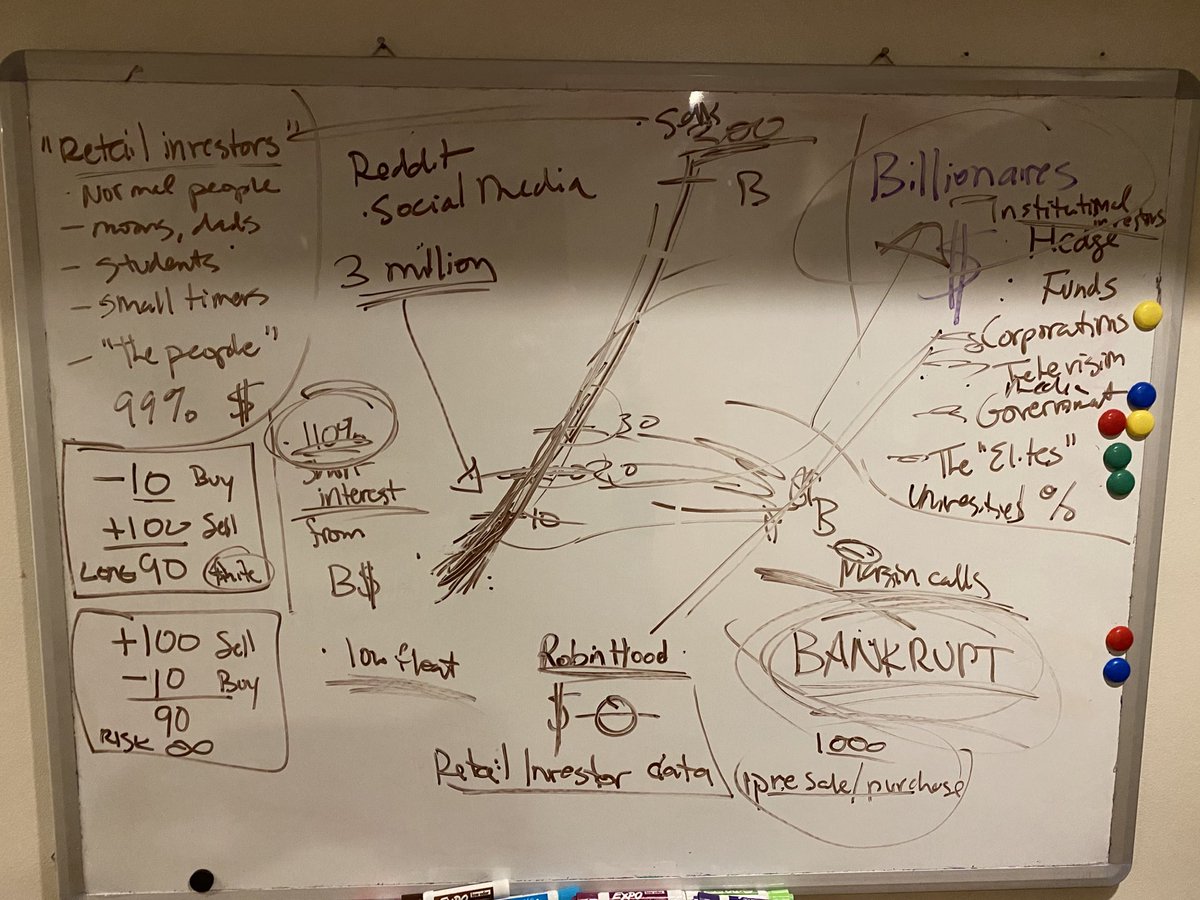 "Retail investors"
· Normal people
- moms, dads
- students
- small timers
- "the people"
99% $
-10 Buy
+100 Sell
LONG 90 finite
+100 Sell
-10 Buy
90
RISK ∞
Reddit
· Social Media
3 million
· 110%
short
interest
from
B$
· low float
· Sells
300
B
30
20
10
B
Billionaires
Institutional
investors
$
· Hedge
Funds
- Corporations
- Television
media
- Government
- The "Elites"
Universities %
Margin calls
BANKRUPT
1000
Robin Hood
$
Retail Investor data
(pre sale/purchase)
EXPO
EXPO